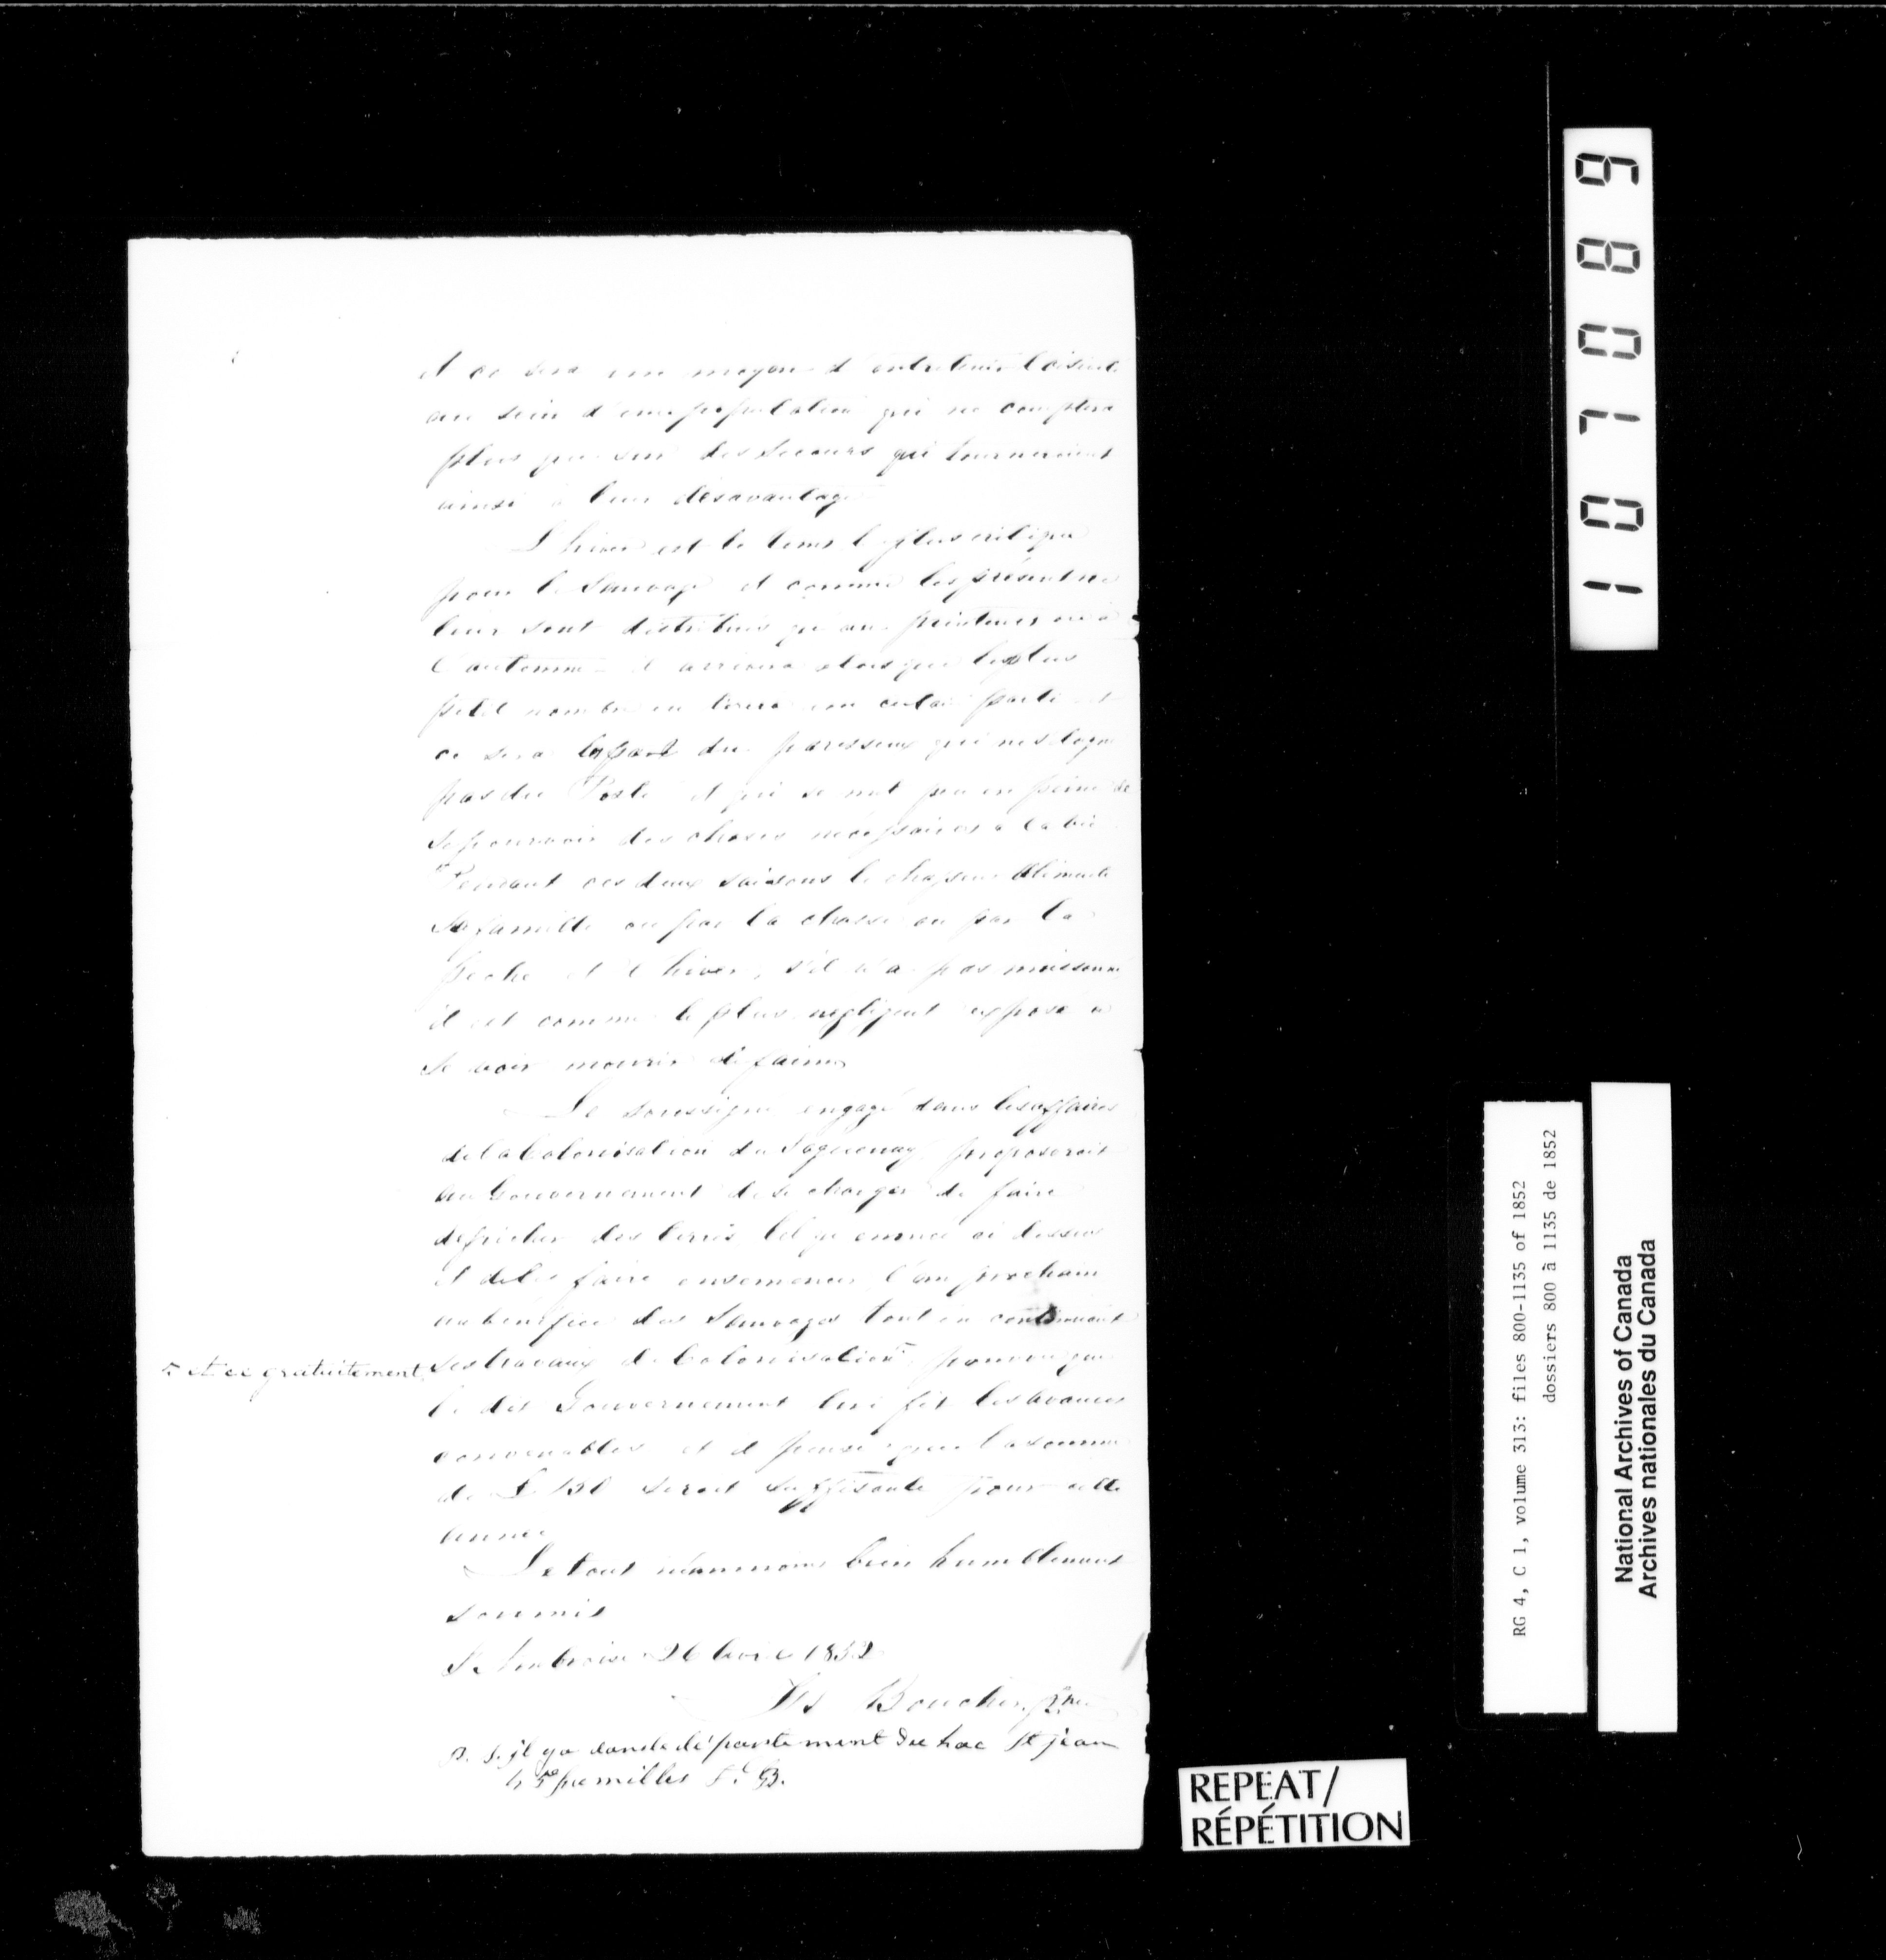 et ce sera un moyen d'entretenir l'oisiveté
au sein d'une population qui ne comptera
plus que sur des secours qui tourneroient
ainsi à leur désavantage
L'hiver est le tems le plus critique
pour le Sauvage et comme les présents ne
leur sont distribués qu'au printems ou à
l'automne il arrivera alors que le plus
petit nombre en tirera un parti et
ce sera la part du paresseux qui
pas du Poste et qui se met peu en peine de
se pourvoir des choses nécessaires à la vie
Pendant ces deux saisons le chasseur alimente
sa famille ou par la chasse ou par la
pêche et l'hiver, s'il n'a pas moissonné
il est comme le plus négligent exposé à
se voir mourir de faim
Le soussigné engagé dans les affaires
de la Colonisation du Saguenay proposeroit
au Gouvernement de se charger de faire
défricher des terres tel que ci dessus
et de les faire ensemencer l'an prochain
au bénéfice des Sauvages tout en continuant
ses travaux de Colonisation pourvu que
et ce gratuitement
le dit Gouvernement lui fit les avances
convenables et il pense que la somme
de £ 150 seroit suffisante pour cette
année
Le tout néanmoins bien humblement
soumis
St Ambroise 26 Avril 1852
Frs Boucher, Ptre
P. S. il y a dans le département du Lac St jean
familles F. B.
REPEAT/
RÉPÉTITION
101089
RG 4, C 1, volume 313: files 800-1135 of 1852
dossiers 800 à 1135 de 1852
National Archives of Canada
Archives nationales du Canada